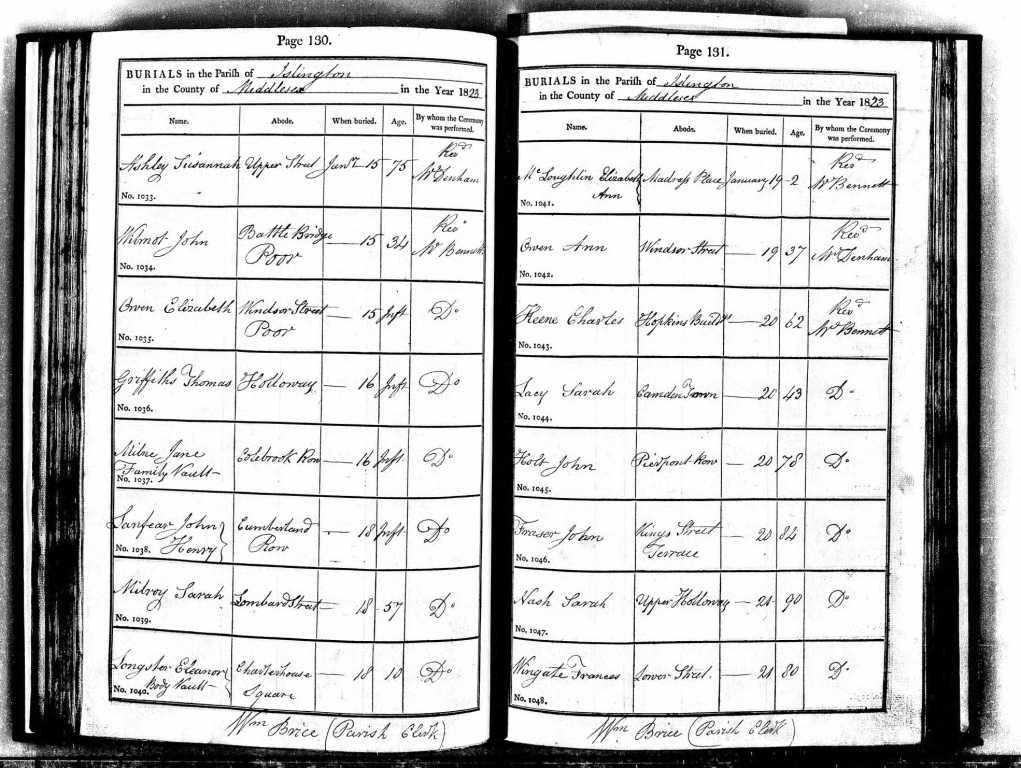 Page 130.
BURIALS in the Parish of Islington
in the County of Middlesex in the Year 1823
Name. Abode. When buried. Age. By whom the Ceremony was performed.
Ashley Susannah Upper Street Jany. 15 75 Revd Mr Denham
No. 1033.
Wilmot John Battle Bridge Poor — 15 34 Revd Mr Bennett
No. 1034.
Owen Elizabeth Windsor Street Poor — 15 Inft Do
No. 1035.
Griffiths Thomas Holloway — 16 Inft Do
No. 1036.
Milne Jane Colebrook Row — 16 Inft Do
Family Vault
No. 1037.
Lanfear John Cumberland — 18 Inft Do
No. 1038. Henry Row
Milroy Sarah Lombard Street — 18 57 Do
No. 1039.
Longster Eleanor Charterhouse — 18 10 Do
No. 1040. Body Vault Square
Wm Brice (Parish Clerk)
Page 131.
BURIALS in the Parish of Islington
in the County of Middlesex in the Year 1823
Name. Abode. When buried. Age. By whom the Ceremony was performed.
Mc Loughlin Elizabeth Madrass Place January 19 2 Revd Mr Bennett
Ann
No. 1041.
Owen Ann Windsor Street — 19 37 Revd Mr Denham
No. 1042.
Keene Charles Hopkins Buildgs — 20 62 Revd Mr Bennett
No. 1043.
Lacy Sarah Camden Town — 20 43 Do
No. 1044.
Holt John Pierpont Row — 20 78 Do
No. 1045.
Fraser John Kings Street — 20 84 Do
No. 1046. Terrace
Nash Sarah Upper Holloway — 21 90 Do
No. 1047.
Wingate Frances Lower Street. — 21 80 Do
No. 1048.
Wm Brice (Parish Clerk)